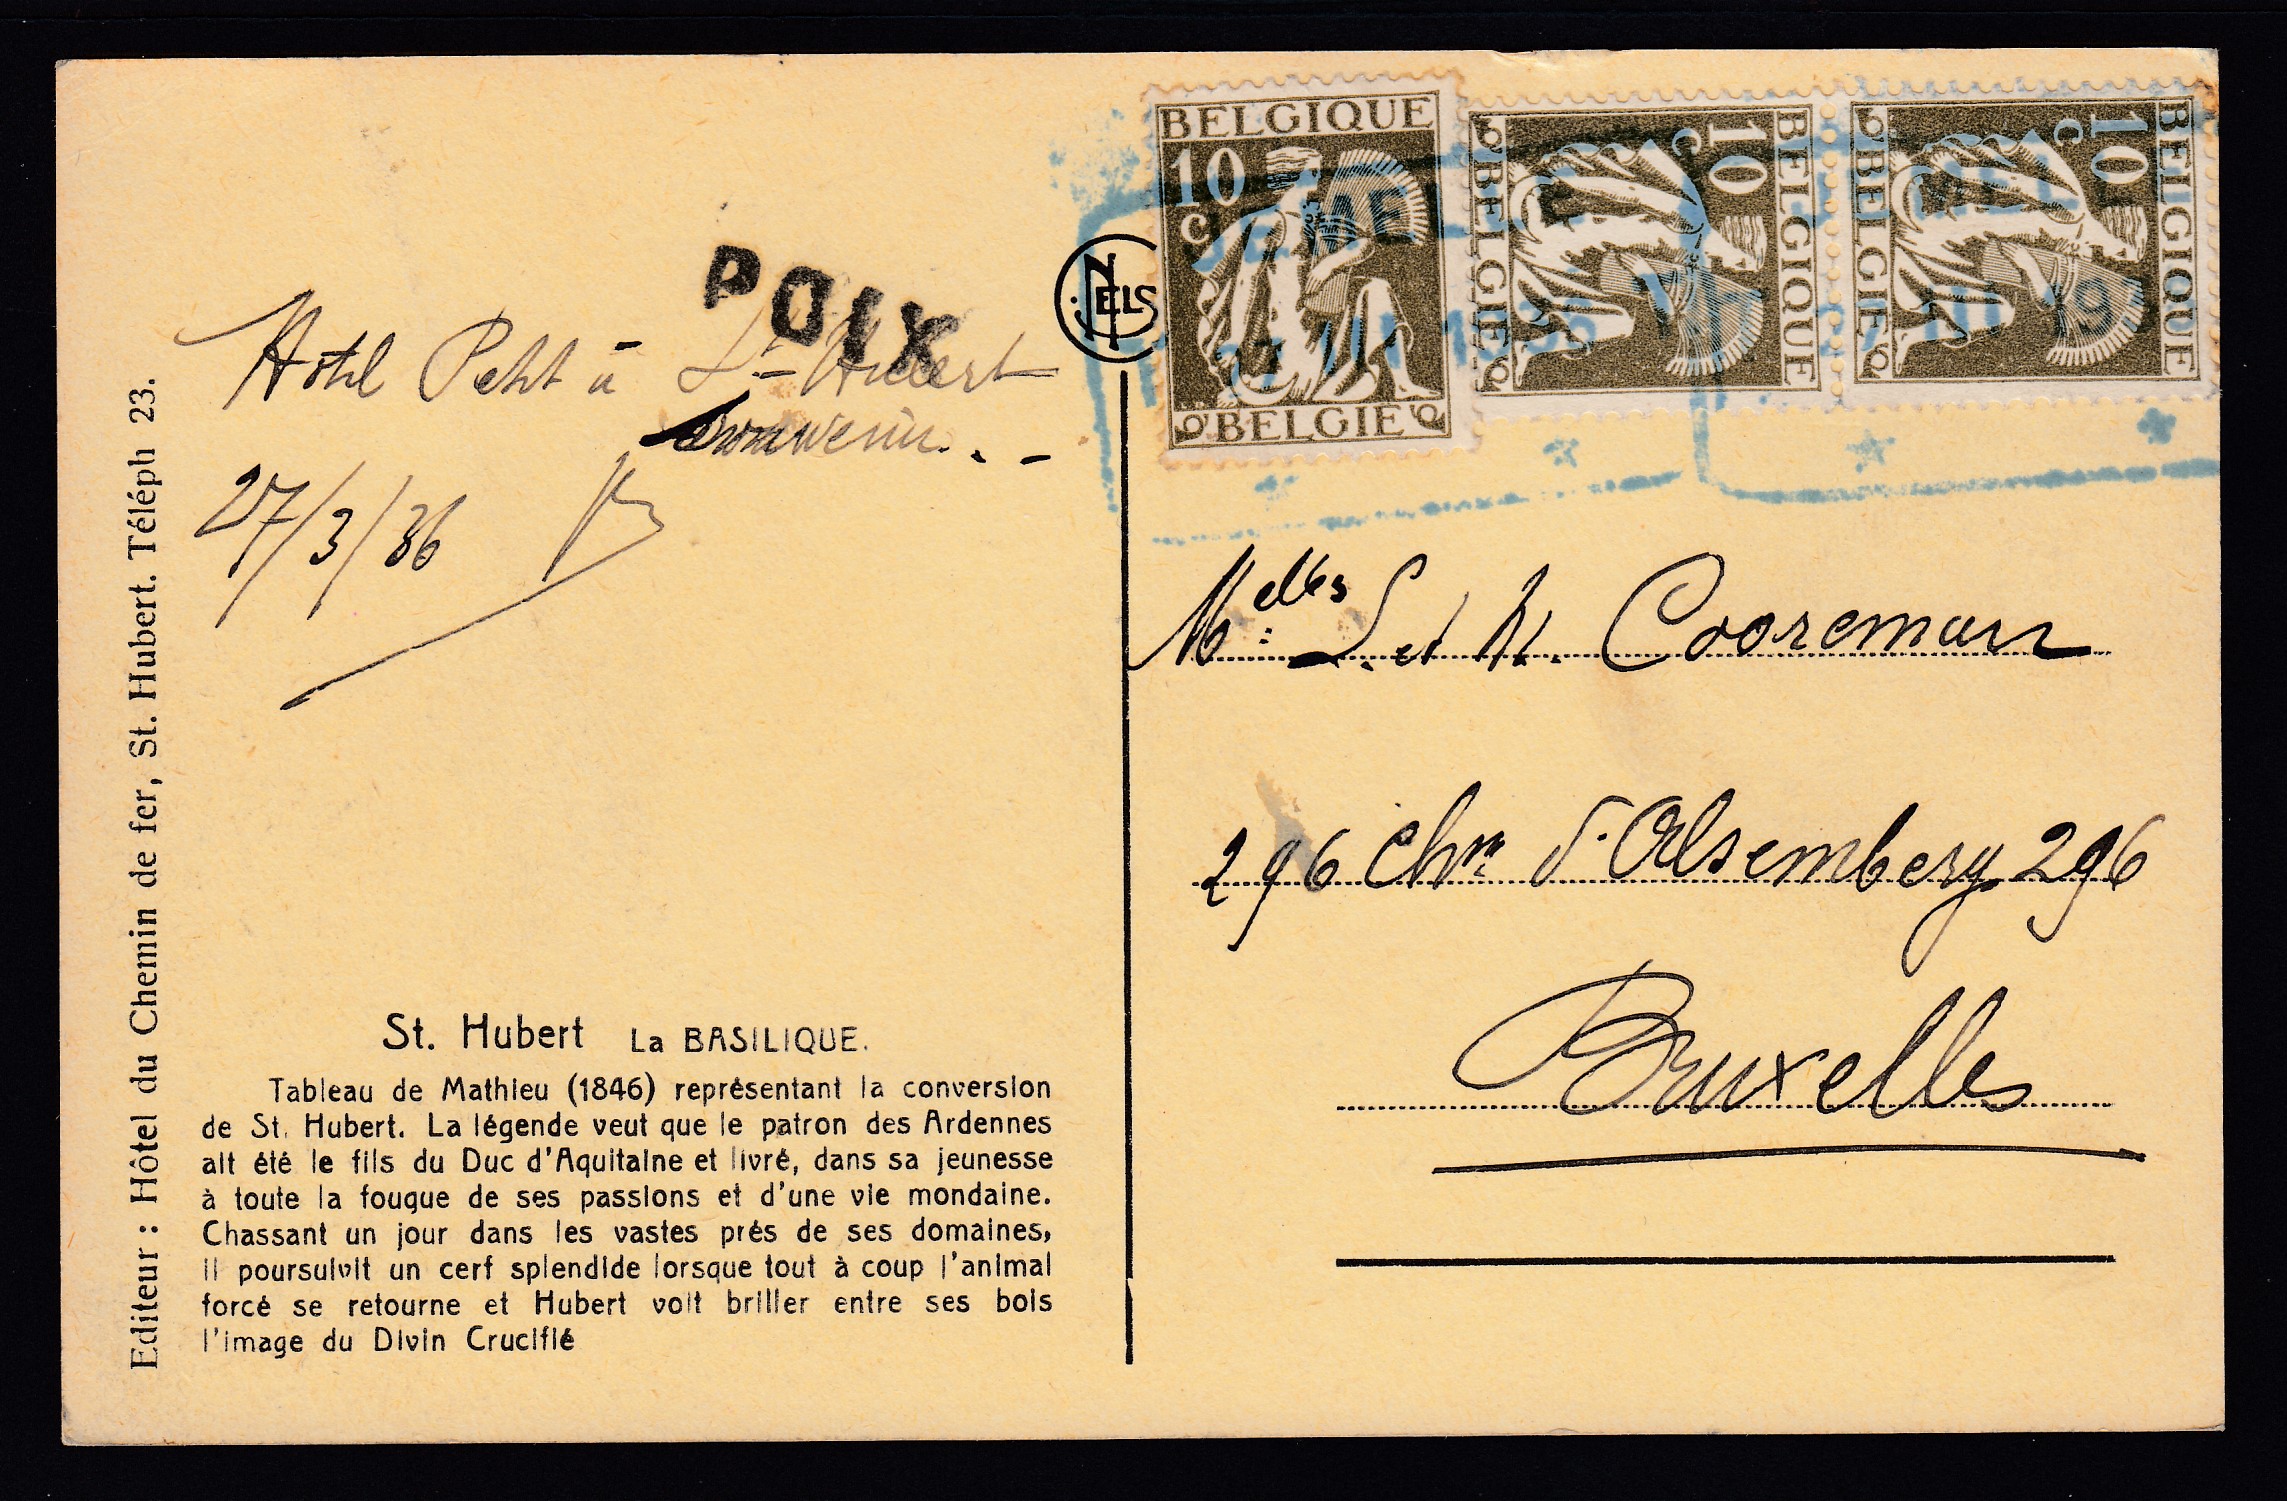 BELGIQUE
10
c
BELGIE
BELGIQUE
10
c
BELGIE
BELGIQUE
10
c
BELGIE
POIX
NELS
Hôtel Petit à St-Hubert
Souvenir..-
27/3/36
Melles L. et N. Cooreman
296 Chée d'Alsemberg 296
Bruxelles
St. Hubert La BASILIQUE.
Tableau de Mathieu (1846) représentant la conversion
de St. Hubert. La légende veut que le patron des Ardennes
ait été le fils du Duc d'Aquitaine et livré, dans sa jeunesse
à toute la fougue de ses passions et d'une vie mondaine.
Chassant un jour dans les vastes prés de ses domaines,
il poursuivit un cerf splendide lorsque tout à coup l'animal
forcé se retourne et Hubert voit briller entre ses bois
l'image du Divin Crucifié
Editeur : Hôtel du Chemin de fer, St. Hubert. Téléph 23.